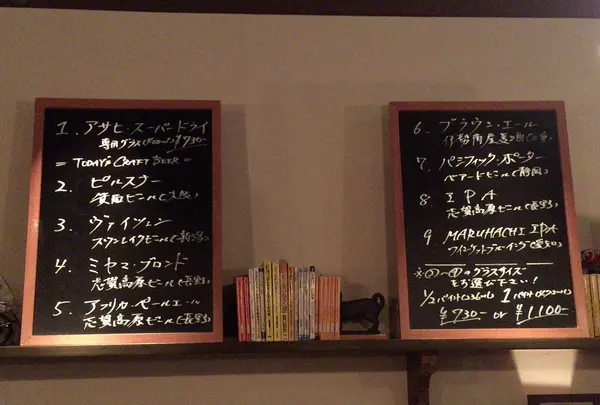 1. アサヒ・スーパードライ
専用グラス ¥930-
= TODAY'S CRAFT BEER =
2. ピルスナー
箕面ビール(大阪)
3. ヴァイツェン
スワンレイクビール(新潟)
4. ミヤマ・ブロンド
志賀高原ビール(長野)
5. アフリカ・ペールエール
志賀高原ビール(長野)
6. ブラウン・エール
伊勢角屋麦酒(三重)
7. パシフィック・ポーター
ベアードビール(静岡)
8. IPA
志賀高原ビール(長野)
9. MARUHACHI IPA
ワイマーケットブルーイング(愛知)
※②〜⑨のグラスサイズ
お選び下さい!
1/2パイント 1パイント
¥930- or ¥1,100-